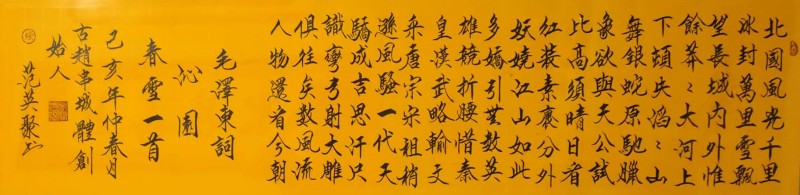 北國風光千里
冰封萬里雪飄
望長城內外惟
餘莽〻大河上
下頓失滔〻山
舞銀蛇原馳蠟
象欲與天公試
比高須晴日看
紅裝素裹分外
妖嬈江山如此
多嬌引無數英
雄競折腰惜秦
皇漢武略輸文
采唐宗宋祖稍
遜風騷一代天
驕成吉思汗只
識彎弓射大雕
俱往矣數風流
人物還首今朝
毛澤東詞
沁園
春雪一首
己亥年仲春月
古趙串城體創
始人
范英聚书